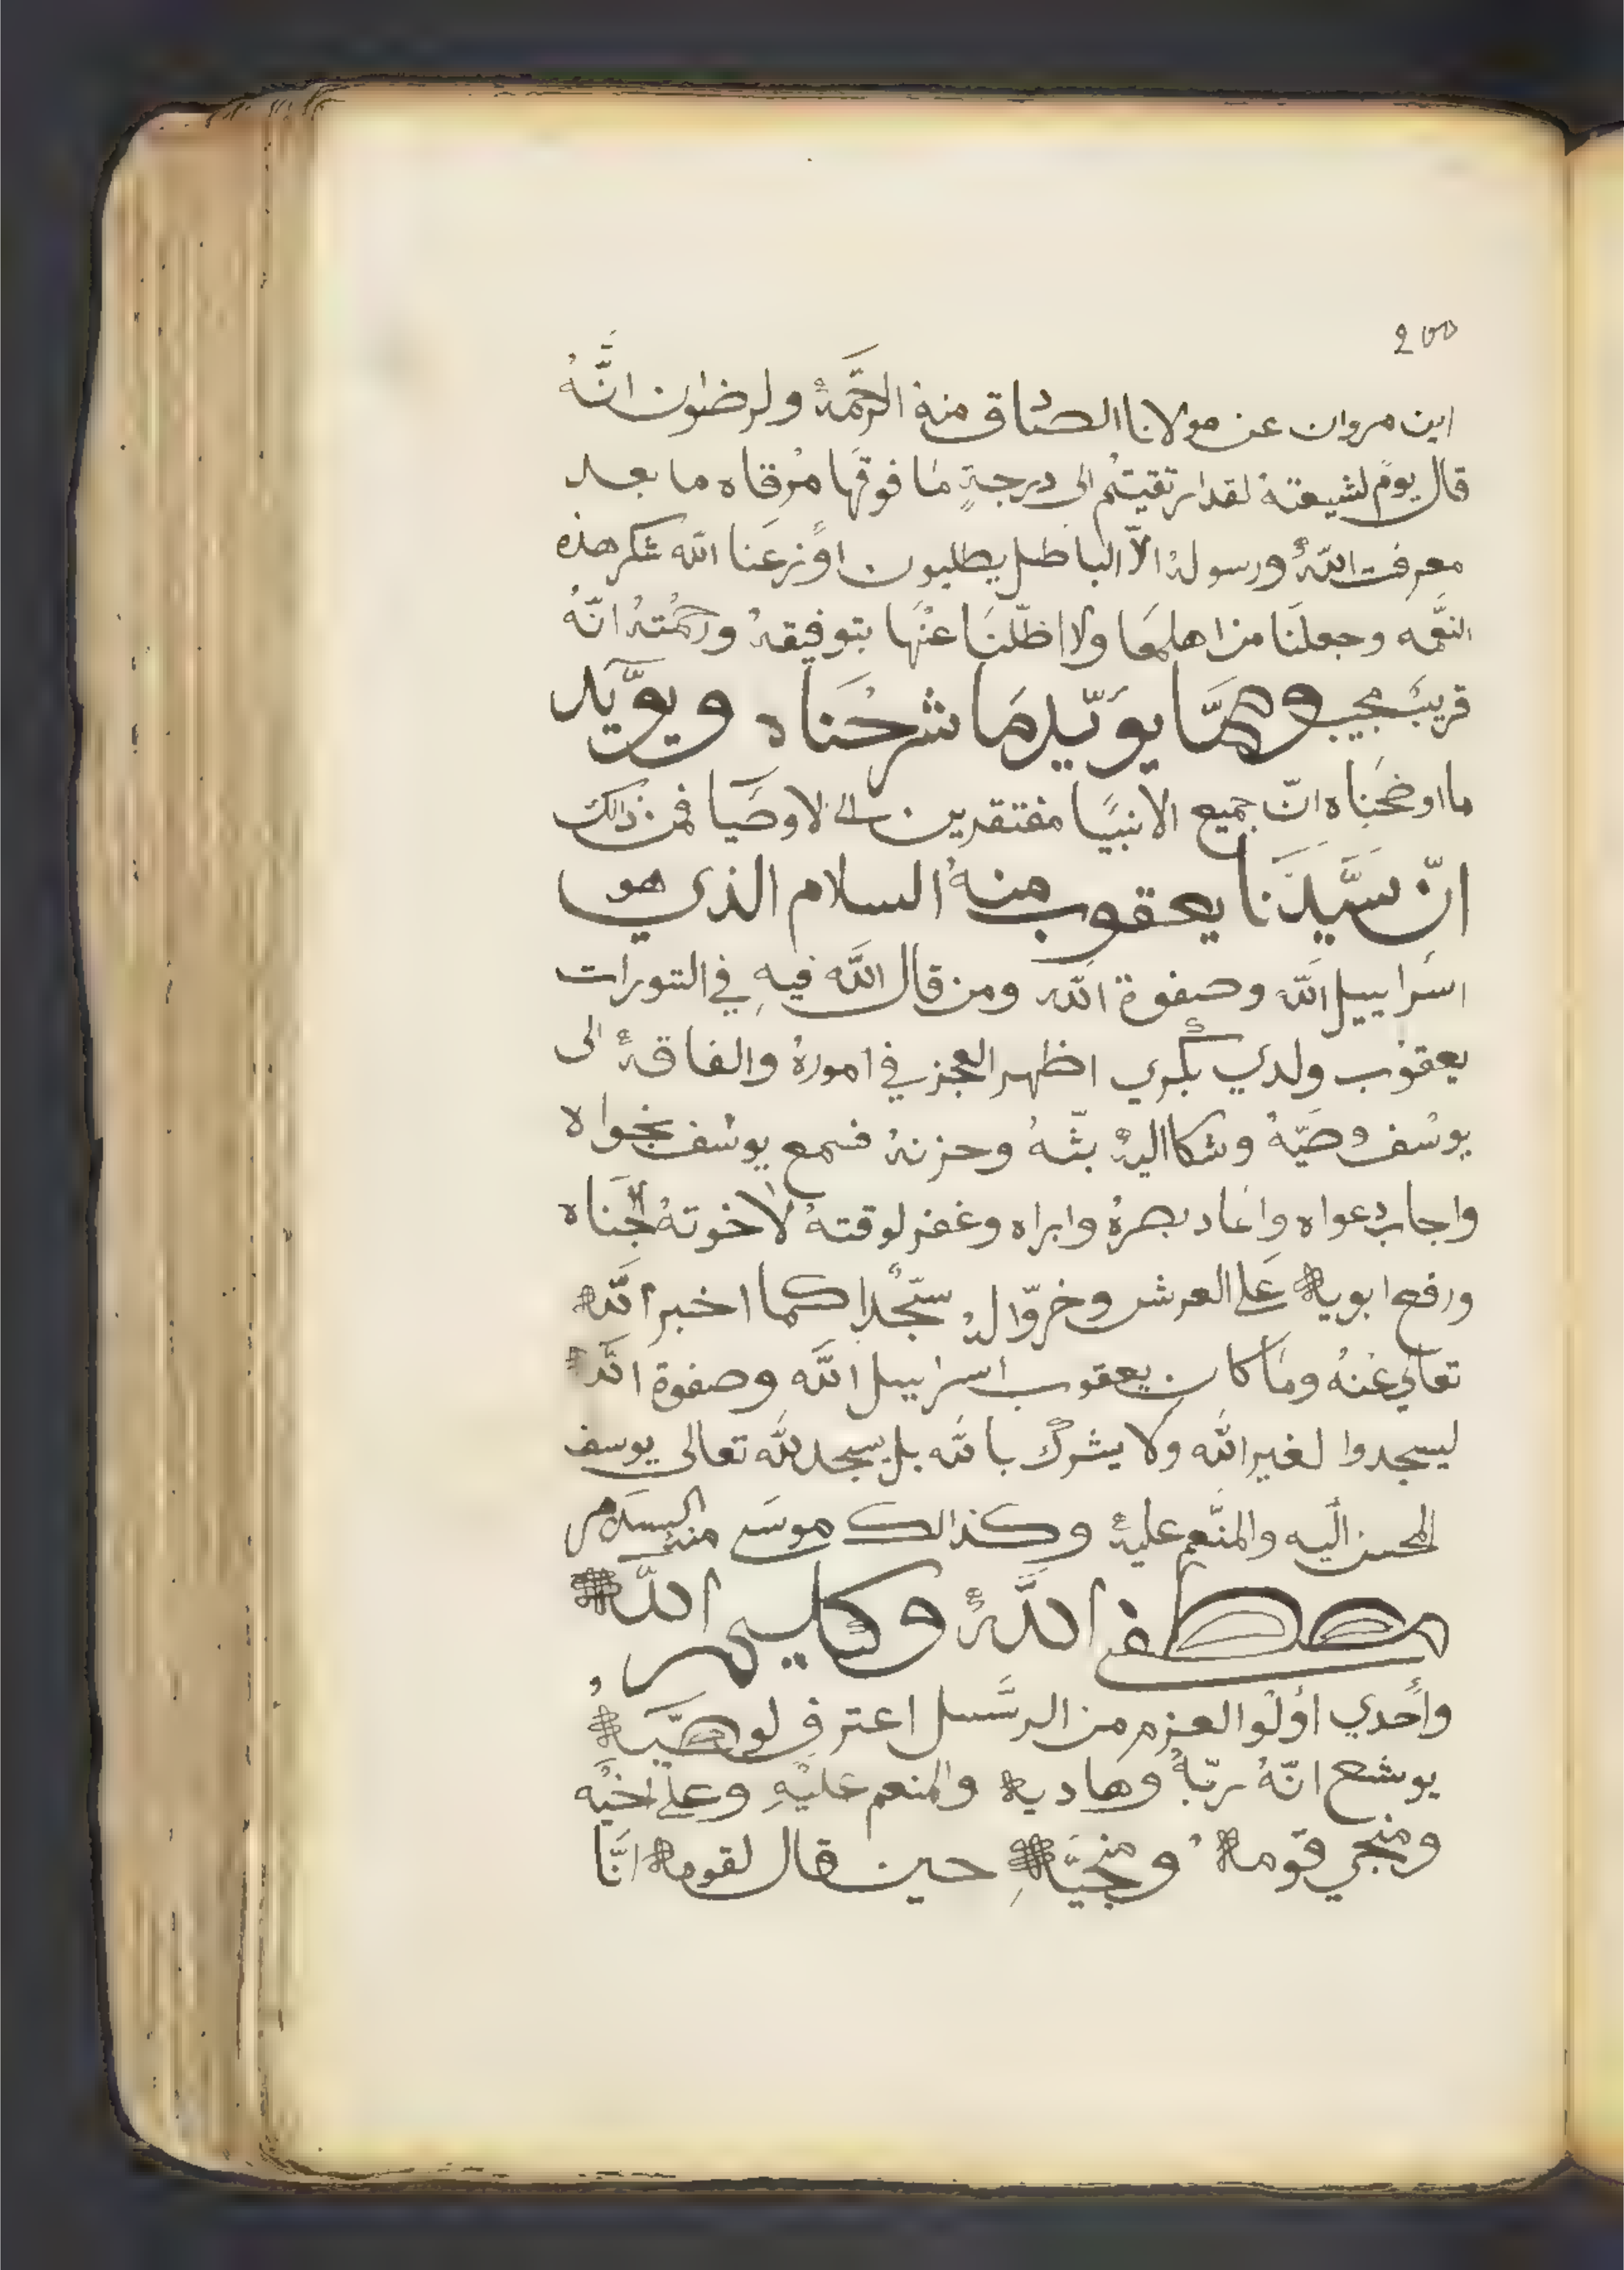 ابن مروان عن مولانا الصادق منه الرحمة ولرضوان انّهُ
قال يومً لشيعتهُ لقد ارتقيتم الى درجةٍ ما فوقها مرقاه ما بعد
معرفت اللّه ورسوله الاّ الباطل يطلبون اوزعنا اللّه شكر هذه
النعمه وجعلنا من اهلها ولا اظلّنا عنها بتوفيقهُ ورحمتهُ انّهُ
قريب مجيب وممّا يويّد ما شرحناه ويويّد
ما اوضحناه انّ جميع الانبيا مفتقرين الى لاوصيا فمن ذالك
انّ سيّدنا يعقوب منهُ السلام الذي هو
اسراييل اللّه وصفوة اللّه ومن قال اللّه فيهِ في التورات
يعقوب ولدي بكري اظهر العجز في امورهُ والفاقهُ الى
يوسف وصيّهُ وشكا اليهُ بثّهُ وحزنهُ فسمع يوسف نجواه
واجاب دعواه واعاد بصرهُ وابراه وغفر لوقتهُ لاخوتهُ الجناه
ورفع ابويه على العرش وخرّوا لهُ سجّدا كما اخبر اللّه
تعالى عنهُ وما كان يعقوب اسراييل اللّه وصفوة اللّه
ليسجدوا لغير اللّه ولا يشرك باللّه بل يسجد للّه تعالى يوسف
المحسن اليه والمنّعم عليهُ وكذالك موسى منهُ السلام
مصطفى اللّهُ وكليم اللّه
وأحدي أولوا العزم من الرسل اعترف لوصيّه
يوشع انّهُ ربّهُ وهاديه والمنعم عليهِ وعلى اخيه
ومنجي قومه ومنجيّه حين قال لقومه انّا